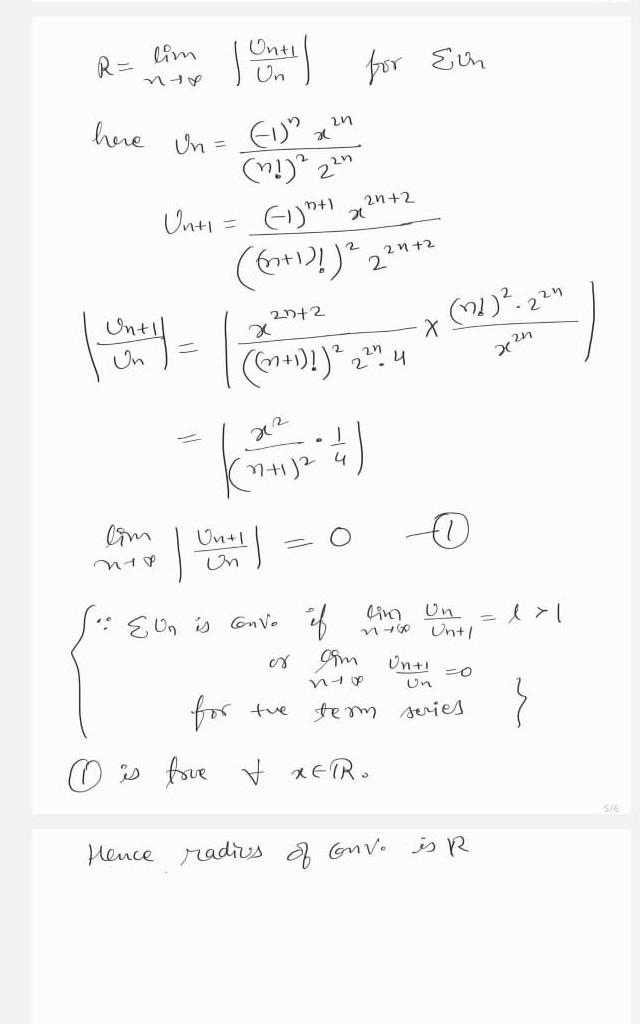 R = lim n→∞ |Un+1 / Un| for ΣUn
here Un = (-1)^n x^2n / (n!)^2 2^2n
Un+1 = (-1)^n+1 x^2n+2 / ((n+1)!)^2 2^2n+2
|Un+1 / Un| = | x^2n+2 / ((n+1)!)^2 2^2n. 4 × (n!)^2 . 2^2n / x^2n |
= | x^2 / (n+1)^2 . 1/4 |
lim n→∞ |Un+1 / Un| = 0 —①
{∵ ΣUn is conv. if lim n→∞ Un / Un+1 = l > 1
or lim n→∞ Un+1 / Un = 0
for +ve term series }
① is true ∀ x∈R.
5/6
Hence radius of conv. is R